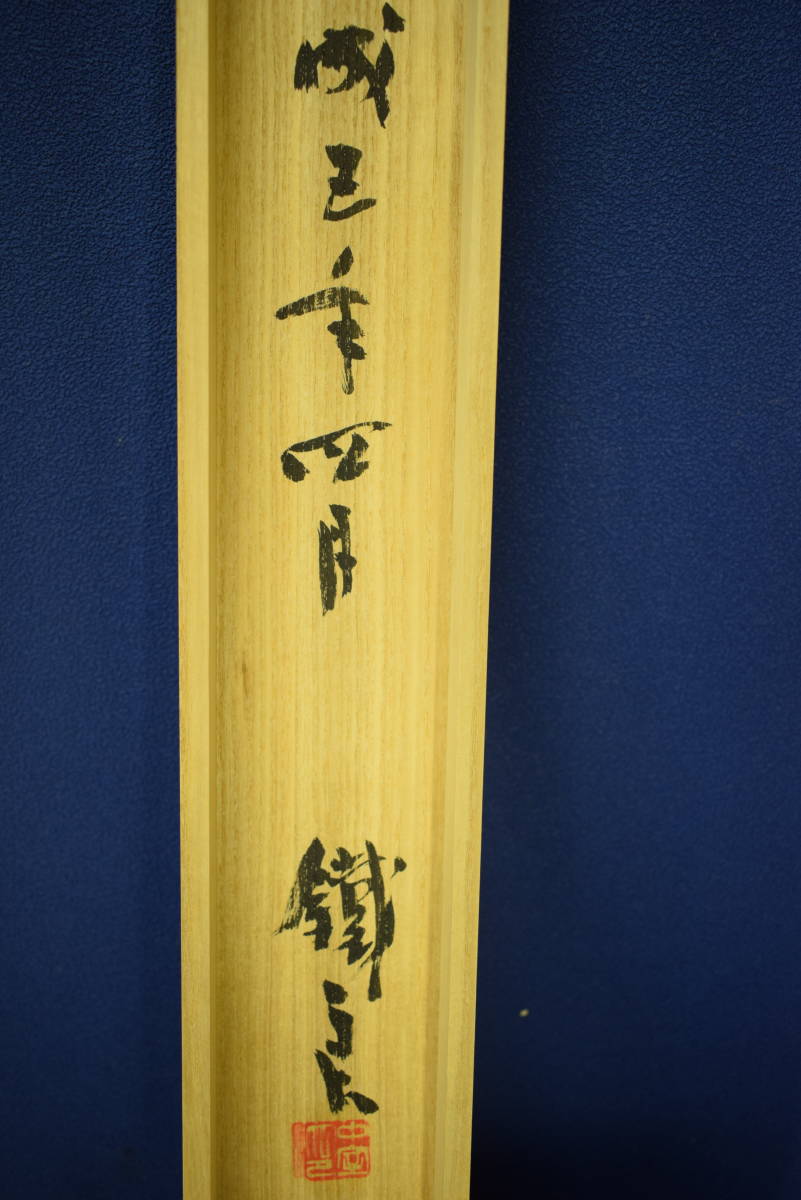 成三年四月 鐵